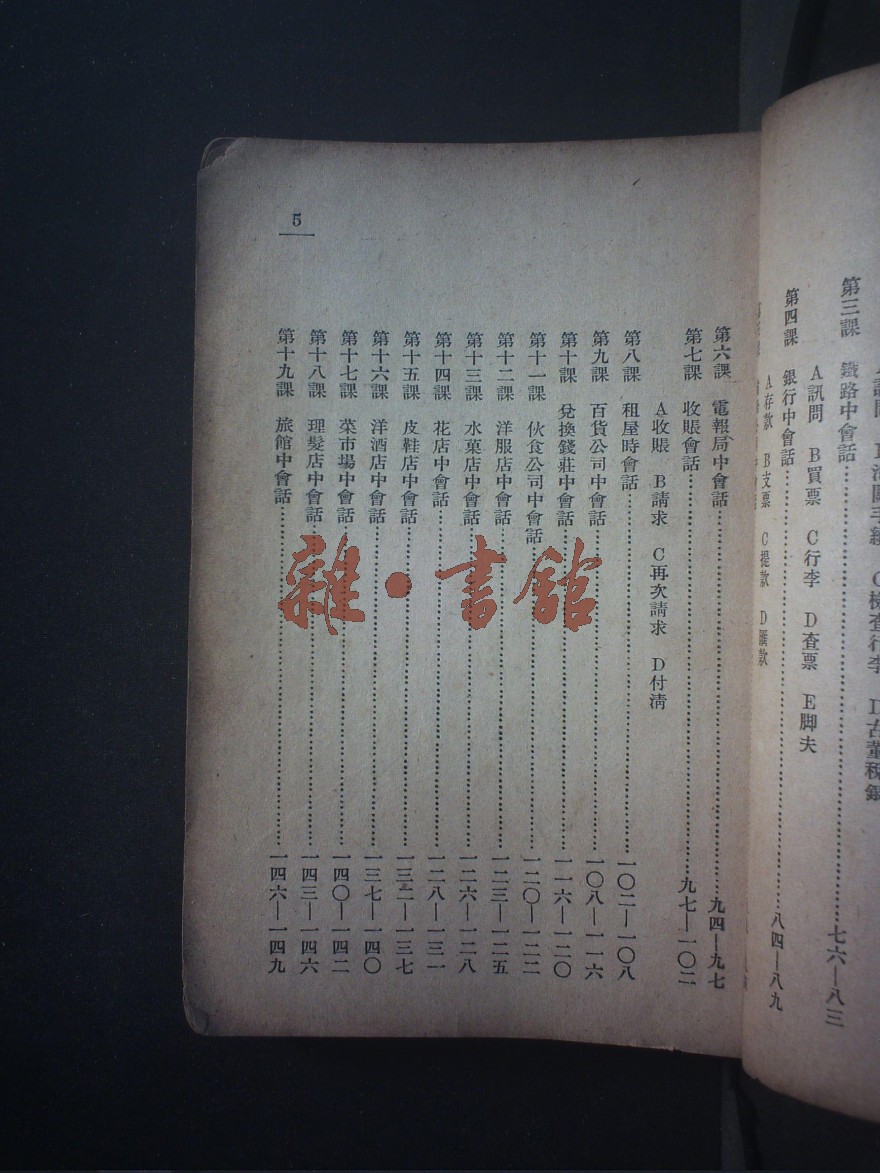 第三課　鐵路中會話……七六—八三
A訊問　B買票　C行李　D查票　E脚夫
第四課　銀行中會話……八四—八九
A存款　B支票　C提款　D匯款
5
第六課　電報局中會話……九四—九七
第七課　收賬會話……九七—一〇二
A收賬　B請求　C再次請求　D付淸
第八課　租屋時會話……一〇二—一〇八
第九課　百貨公司中會話……一〇八—一一六
第十課　兌換錢莊中會話……一一六—一二〇
第十一課　伙食公司中會話……一二〇—一二二
第十二課　洋服店中會話……一二三—一二五
第十三課　水菓店中會話……一二六—一二八
第十四課　花店中會話……一二八—一三一
第十五課　皮鞋店中會話……一三二—一三七
第十六課　洋酒店中會話……一三七—一四〇
第十七課　菜市場中會話……一四〇—一四二
第十八課　理髮店中會話……一四三—一四六
第十九課　旅館中會話……一四六—一四九
雜·書館